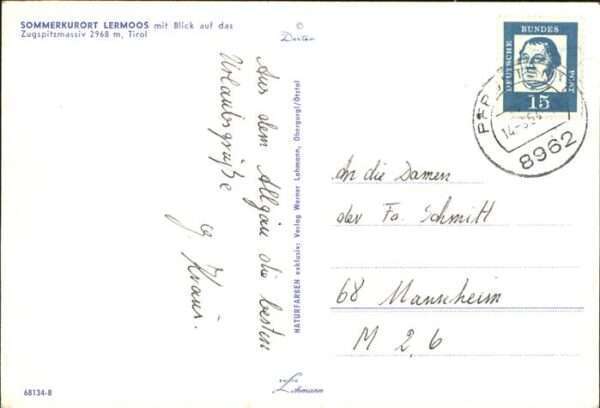 SOMMERKURORT LERMOOS mit Blick auf das
Zugspitzmassiv 2968 m, Tirol
Aus dem Allgäu die besten
Urlaubsgrüße
Kraus.
NATURFARBEN exklusiv: Verlag Werner Lohmann, Obergurgl/Ötztal
Lohmann
68134-B
DEUTSCHE BUNDES POST
15
8962
An die Damen
der Fa. Schmitt
68 Mannheim
M 2,6